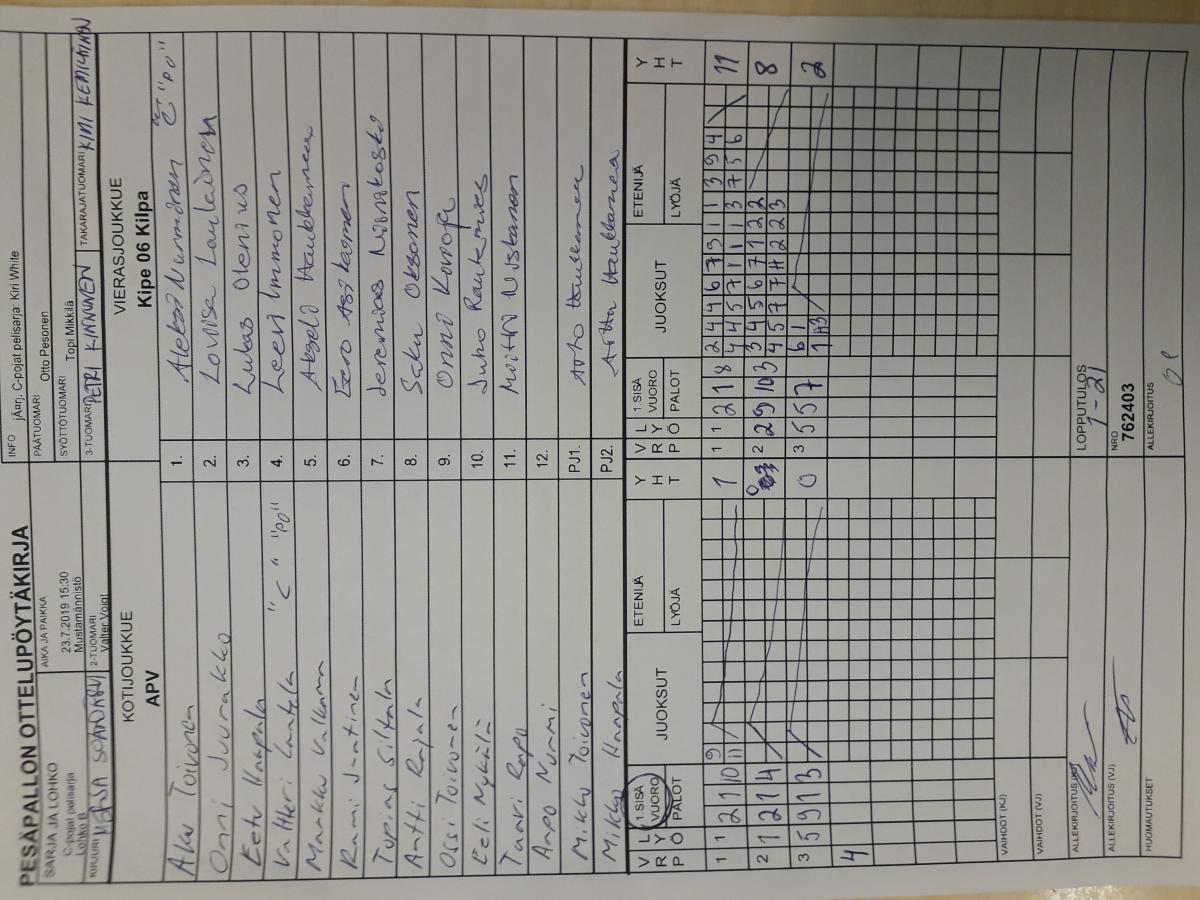 PESÄPALLON OTTELUPÖYTÄKIRJA
SARJA JA LOHKO
C-pojat pelisarja
Lohko B
AIKA JA PAIKKA
23.7.2019 15:30
Mustamännistö
INFO jÄarj. C-pojat pelisarja: Kiri White
PÄÄTUOMARI Otto Pesonen
SYÖTTÖTUOMARI Topi Mikkilä
KIRJURI
2-TUOMARI
Valter Voigt
3-TUOMARI PETRI KINNUNEN
TAKARAJATUOMARI KIMI KEMILÄINEN
KOTIJOUKKUE
APV
VIERASJOUKKUE
Kipe 06 Kilpa
Aku Toivonen 1. Aleksi Nurminen C "PO"
Onni Juurakko 2. Loviisa Laulainen
Eetu Haapala 3. Lukas Olenius
Valtteri Lantela "C" "PO" 4. Leevi Immonen
Markku Valkama 5. Akseli Haukkamaa
Rami Juntinen 6. Eero Asikainen
Topias Siltala 7. Jeremias Niinikoski
Antti Rajala 8. Saku Oksanen
Ossi Toivonen 9. Onni Korrofa
Eeli Nykälä 10. Juho Rautarves
Tuuri Rapu 11. Moitto Nuiskanen
Aapo Nurmi 12.
Mikko Toivonen PJ1. Arto Haukkamaa
Mikko Haapala PJ2. Arttu Haukkamaa
V R P L Y Ö 1.SISÄ VUORO PALOT JUOKSUT ETENIJÄ LYÖJÄ Y H T
V R P L Y Ö 1.SISÄ VUORO PALOT JUOKSUT ETENIJÄ LYÖJÄ Y H T
1 1 2 1 10 9 11 1
1 1 2 1 8 2 4 4 6 7 3 1 1 3 9 4 11
4 4 5 7 1 1 1 3 7 5 6
2 1 2 1 4 0
2 2 9 10 3 3 4 5 6 7 1 2 2 8
4 5 7 7 11 2 2 3
3 5 9 1 3 0
3 5 5 7 6 1 2
1 A3
4
VAIHDOT (KJ)
VAIHDOT (VJ)
ALLEKIRJOITUS (KJ)
LOPPUTULOS
1-21
ALLEKIRJOITUS (VJ)
NRO
762403
HUOMAUTUKSET
ALLEKIRJOITUS